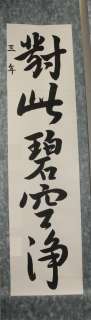 對此碧空淨
三年